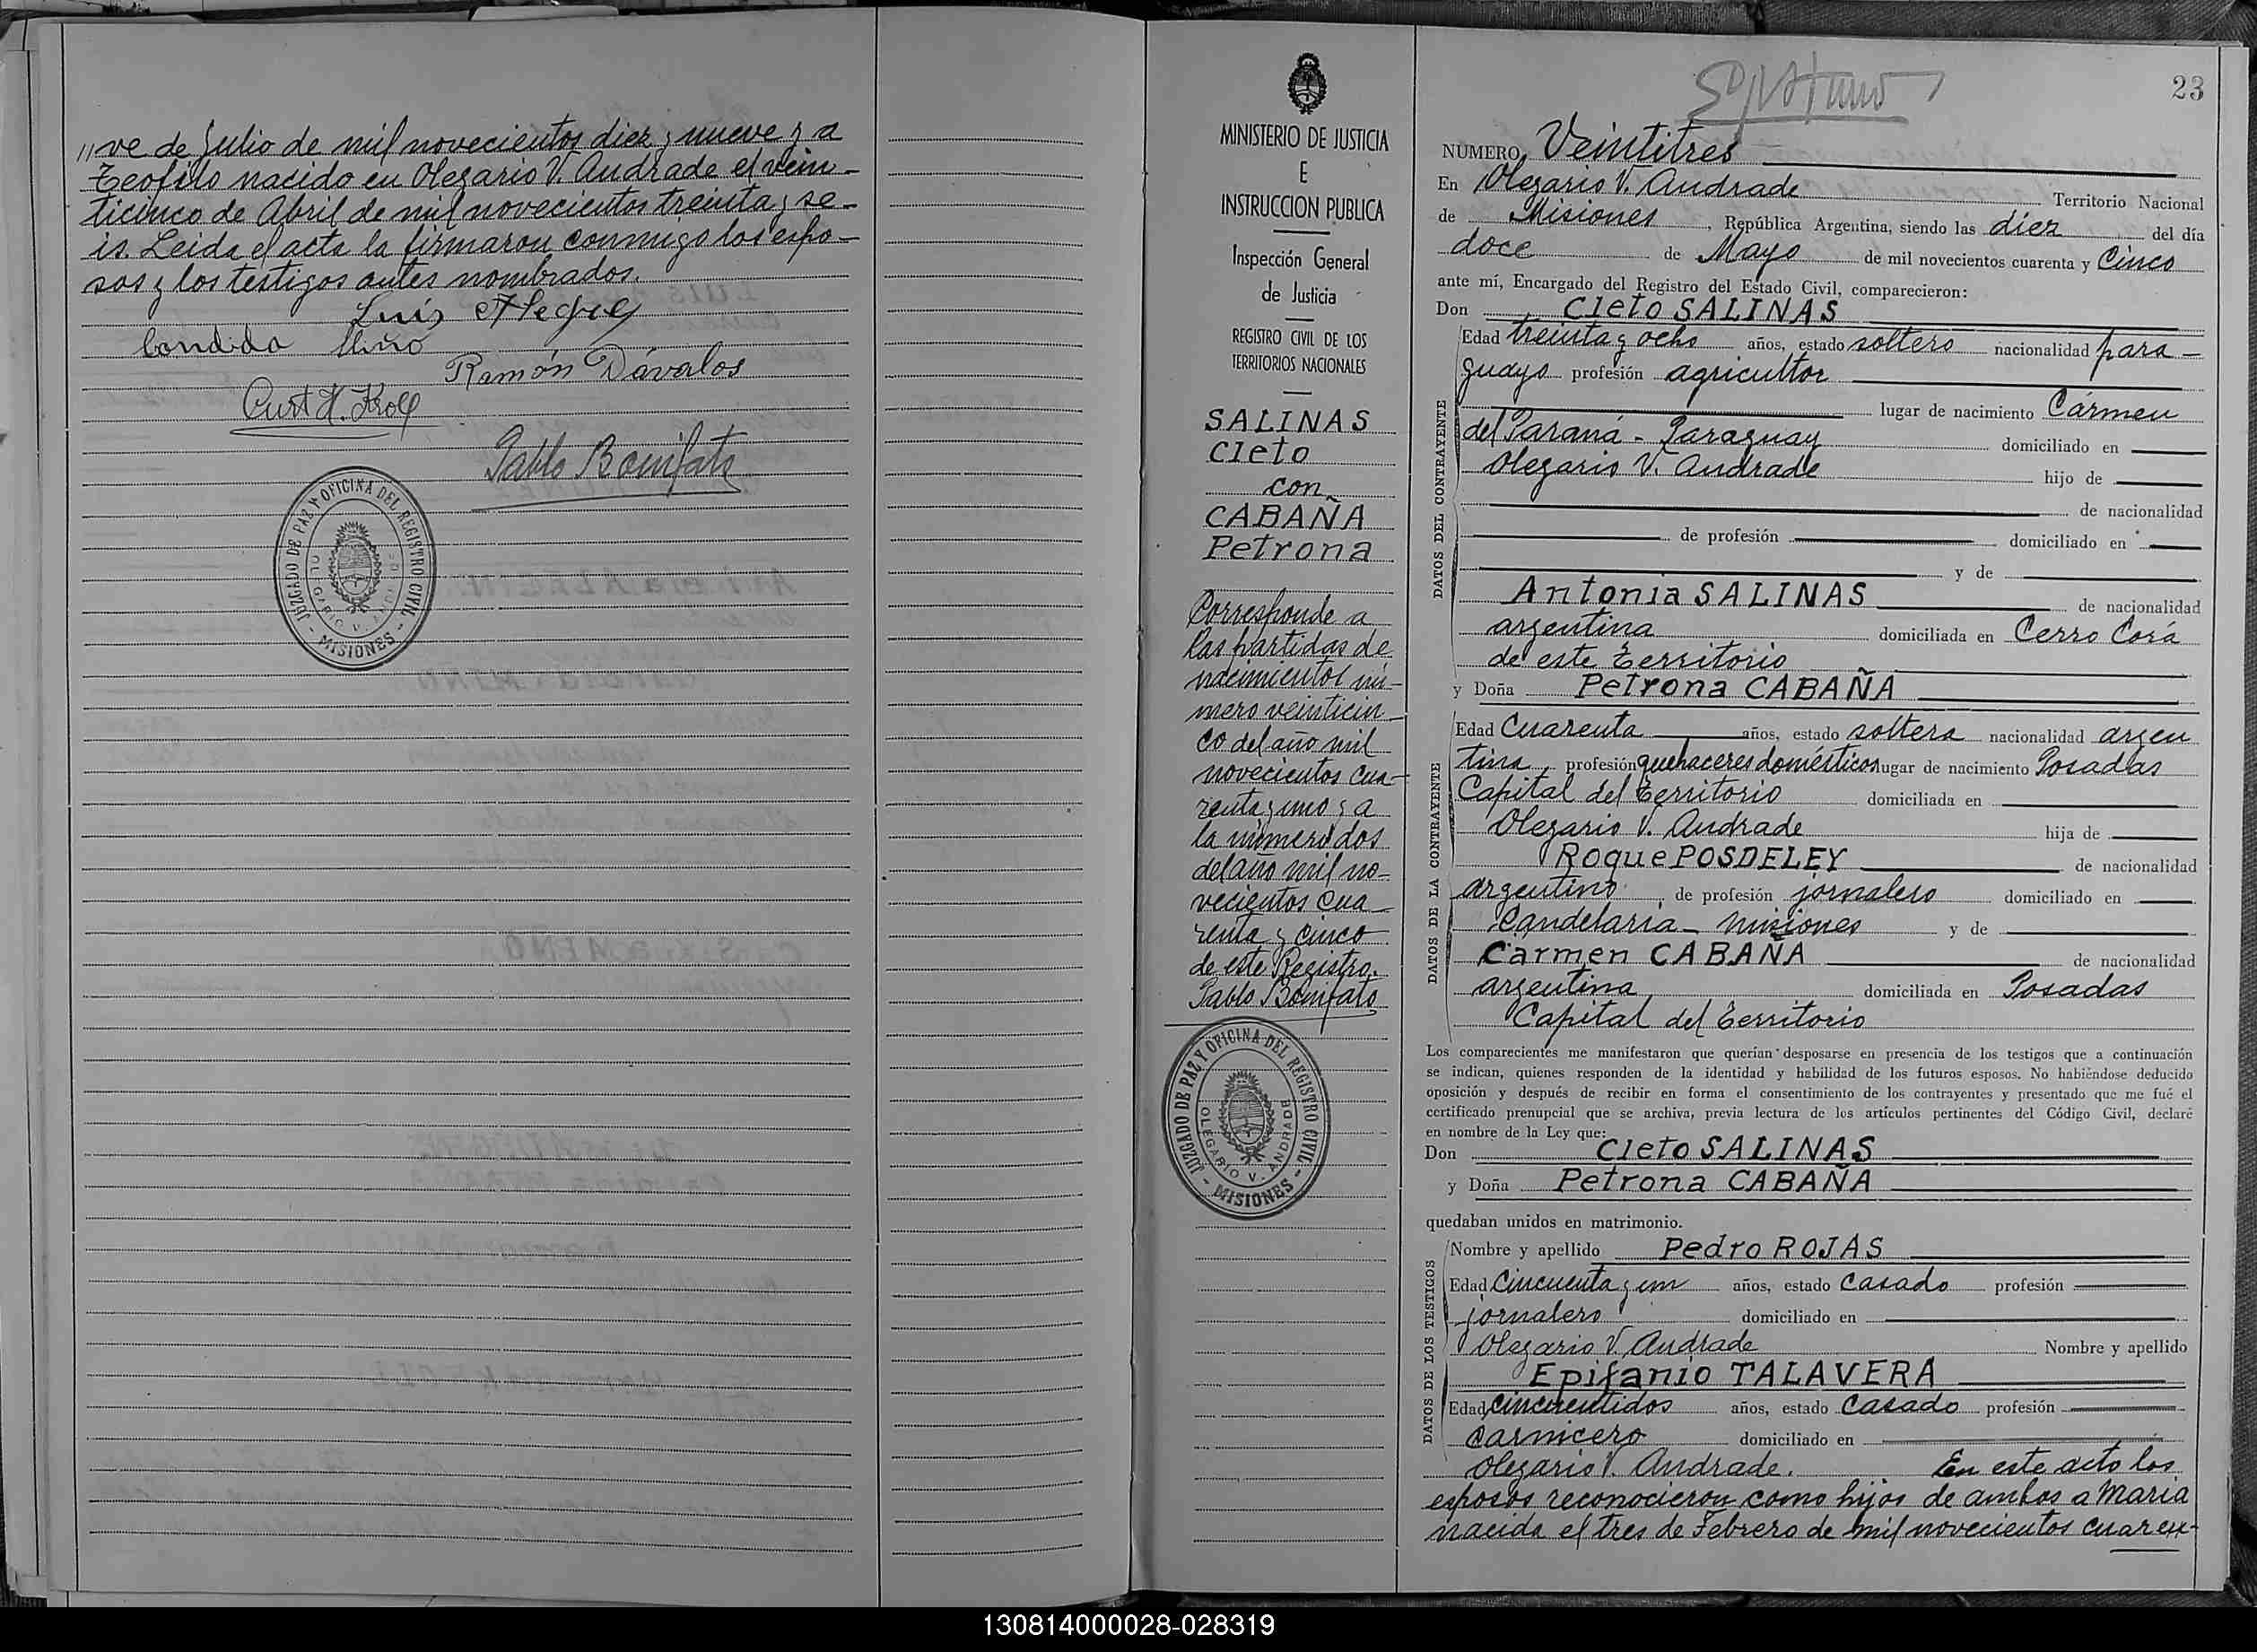 ve de Julio de mil novecientos diez y nueve y a
Teofilo nacido en Olegario V. Andrade el vein-
ticinco de Abril de mil novecientos treinta y se-
is. Leida el acta la firmaron conmigo los espo-
sos y los testigos antes nombrados.
Luis Alegre
Candida Miño
Ramón Dávalos
Curt H. Kroll
Pablo Bonifato
JUZGADO DE PAZ Y OFICINA DEL REGISTRO CIVIL
OLEGARIO V. ANDRADE
- MISIONES -
MINISTERIO DE JUSTICIA
E
INSTRUCCION PUBLICA
Inspección General
de Justicia
REGISTRO CIVIL DE LOS
TERRITORIOS NACIONALES
SALINAS
Cleto
con
CABAÑA
Petrona
Corresponde a
las partidas de
nacimientos nú-
mero veinticin-
co del año mil
novecientos cua-
renta y uno y a
la número dos
del año mil no-
vecientos cua-
renta y cinco
de este Registro.
Pablo Bonifato
JUZGADO DE PAZ Y OFICINA DEL REGISTRO CIVIL
OLEGARIO V. ANDRADE
- MISIONES -
23
NUMERO Veintitres
En Olegario V. Andrade Territorio Nacional
de Misiones, República Argentina, siendo las diez del día
doce de Mayo de mil novecientos cuarenta y Cinco
ante mí, Encargado del Registro del Estado Civil, comparecieron:
Don Cleto SALINAS
DATOS DEL CONTRAYENTE
Edad treinta y ocho años, estado soltero nacionalidad para-
guayo profesión agricultor
lugar de nacimiento Cármen
del Paraná - Paraguay domiciliado en
Olegario V. Andrade hijo de
de nacionalidad
de profesión domiciliado en
y de
Antonia SALINAS de nacionalidad
argentina domiciliada en Cerro Corá
de este Territorio
y Doña Petrona CABAÑA
DATOS DE LA CONTRAYENTE
Edad Cuarenta años, estado soltera nacionalidad argen
tina profesión quehaceres domésticos lugar de nacimiento Posadas
Capital del Territorio domiciliada en
Olegario V. Andrade hija de
Roque POSDELEY de nacionalidad
argentino, de profesión jornalero domiciliado en
Candelaria - Misiones y de
Cármen CABAÑA de nacionalidad
argentina domiciliada en Posadas
Capital del Territorio
Los comparecientes me manifestaron que querían desposarse en presencia de los testigos que a continuación
se indican, quienes responden de la identidad y habilidad de los futuros esposos. No habiéndose deducido
oposición y después de recibir en forma el consentimiento de los contrayentes y presentado que me fué el
certificado prenupcial que se archiva, previa lectura de los artículos pertinentes del Código Civil, declaré
en nombre de la Ley que:
Don Cleto SALINAS
y Doña Petrona CABAÑA
quedaban unidos en matrimonio.
DATOS DE LOS TESTIGOS
Nombre y apellido Pedro ROJAS
Edad Cincuenta y un años, estado Casado profesión
jornalero domiciliado en
Olegario V. Andrade Nombre y apellido
Epifanio TALAVERA
Edad cincuentidos años, estado Casado profesión
Carnicero domiciliado en
Olegario V. Andrade. En este acto los
esposos reconocieron como hijos de ambos a Maria
nacida el tres de Febrero de mil novecientos cuaren-
130814000028-028319